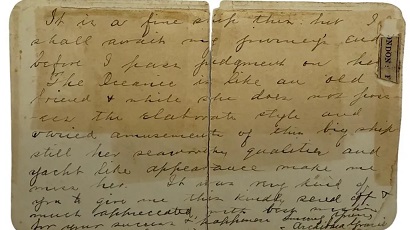 It is a fine ship this but I
shall await my journeys end
before I pass judgment on her.
The Oceanic is like an old
friend & while she does not poss-
ess the elaborate style and
varied amusements of this big ship
still her seaworthy qualities and
yacht like appearance make me
miss her. It was very kind of
you to give me this kindly send off &
much appreciated with best wishes
for your success & happiness
Archibald Gracie
NDON: T